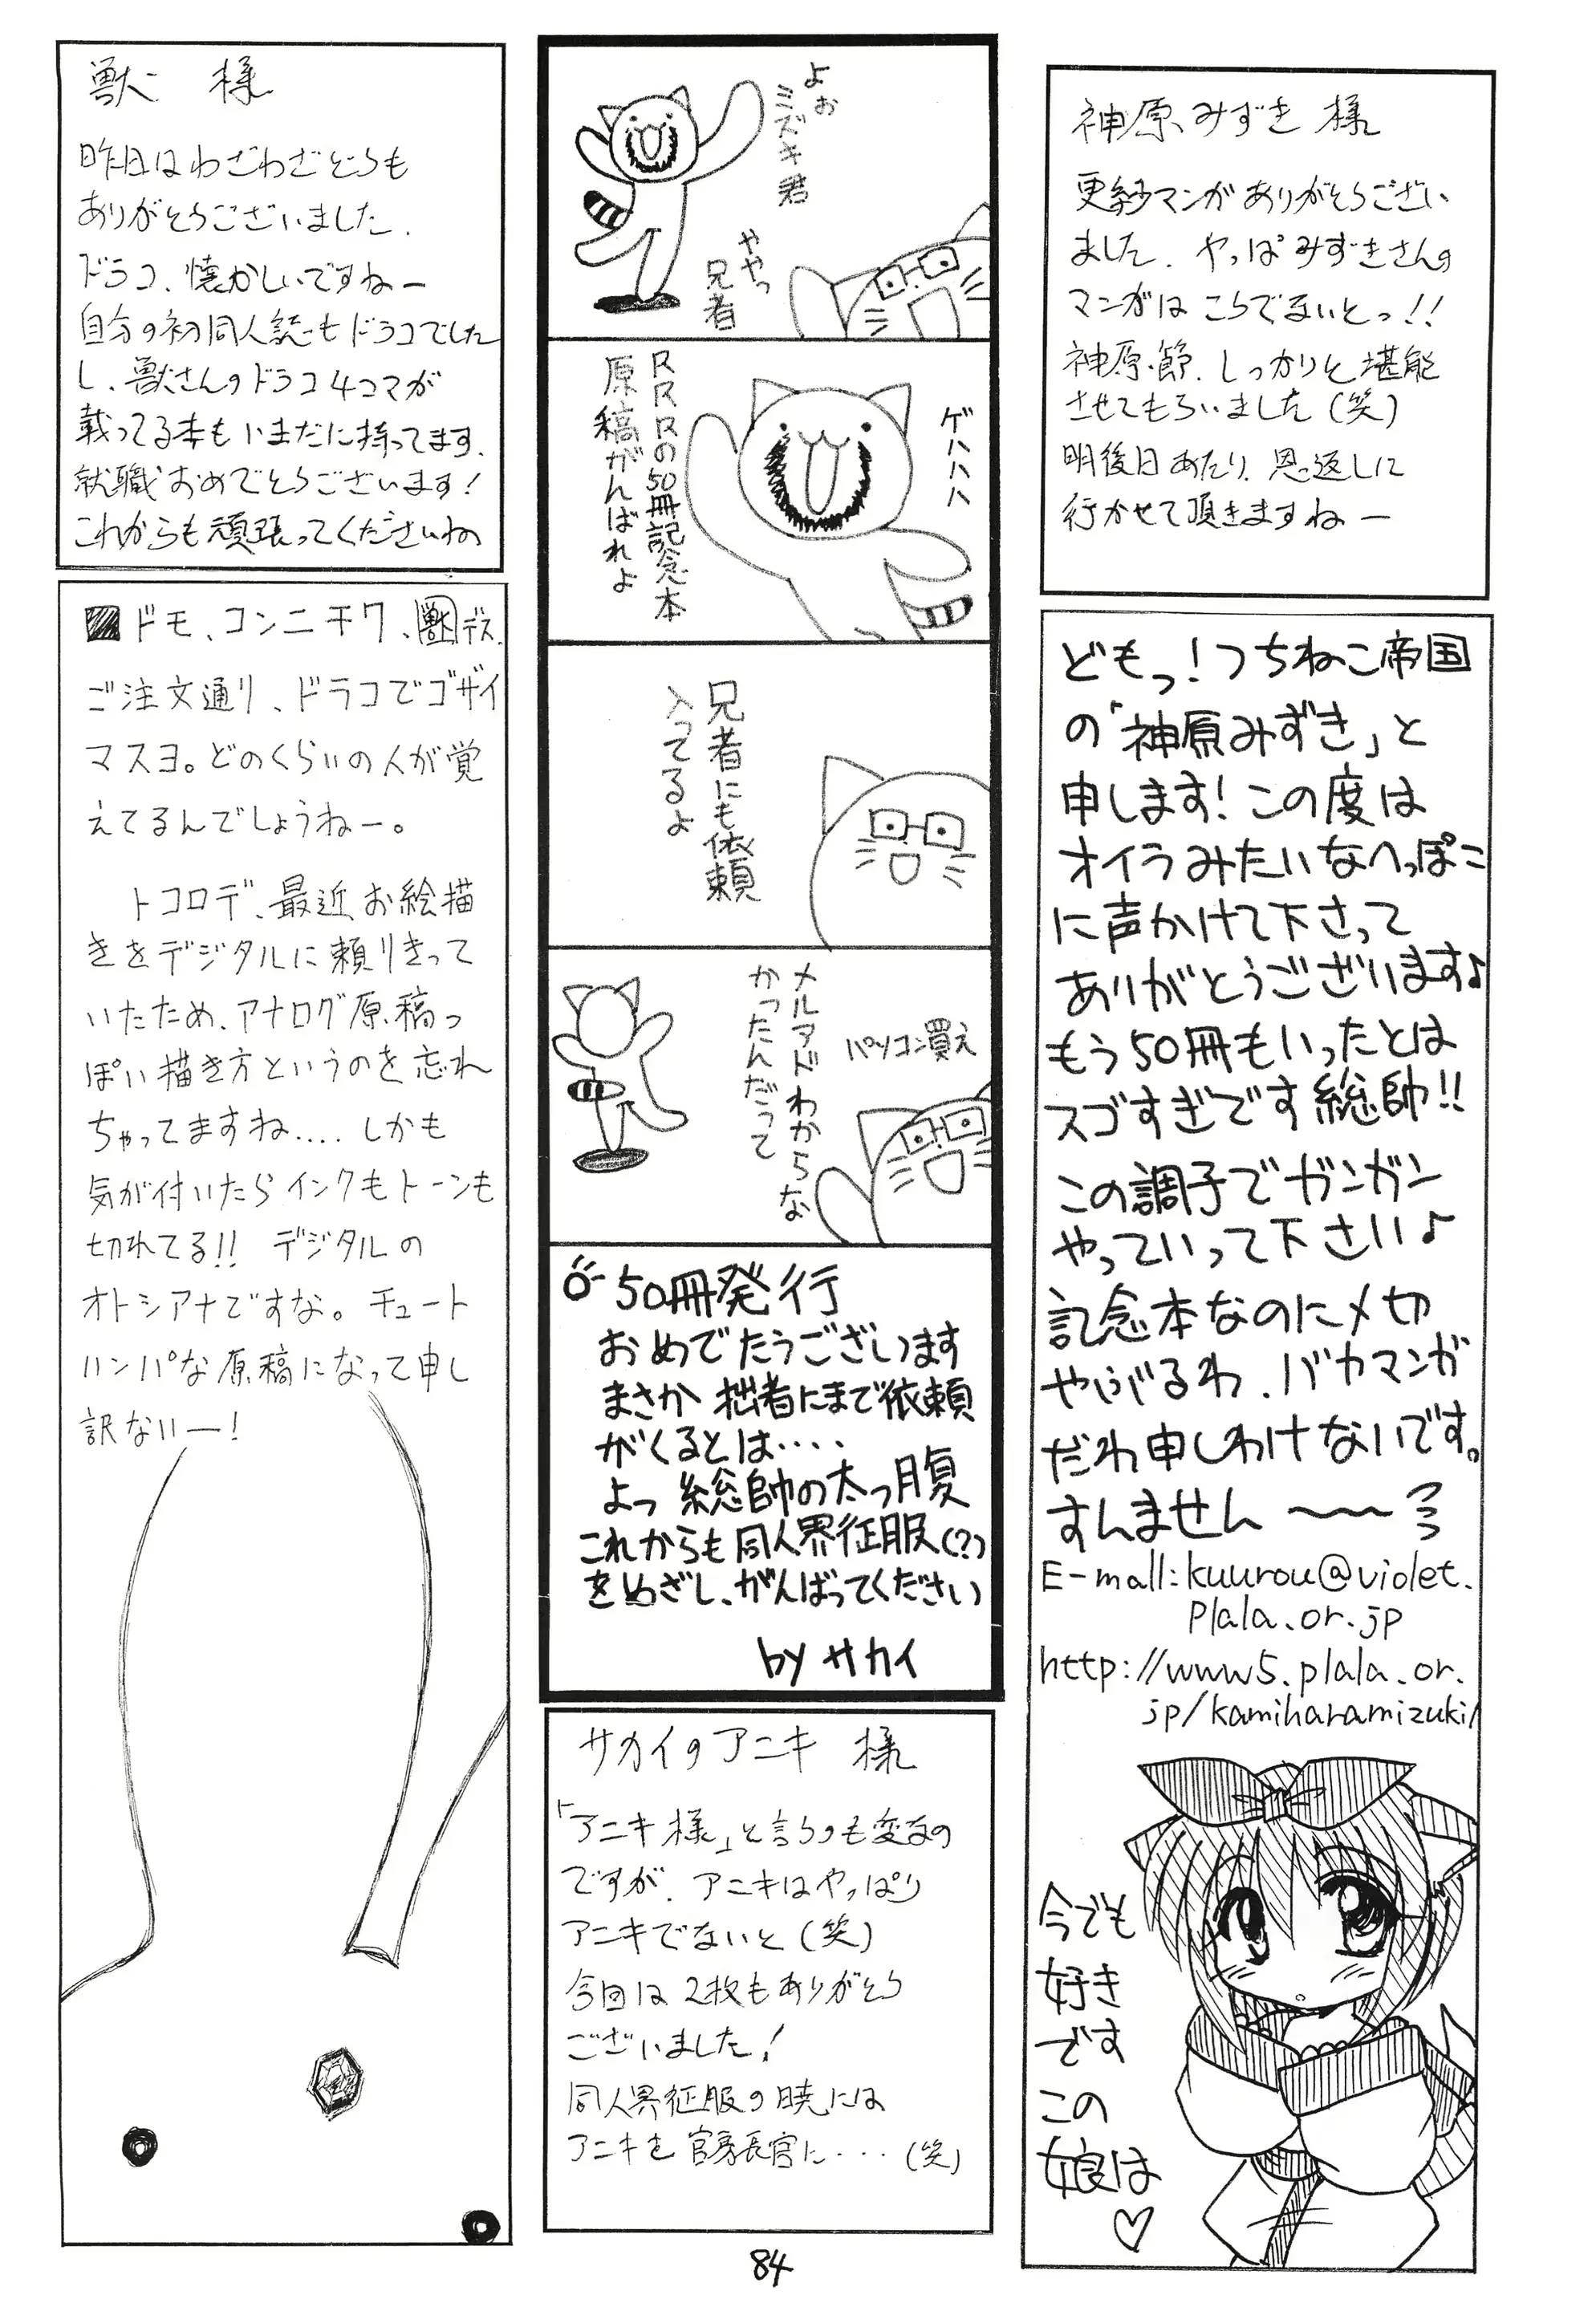 神原みずき 様
更紗マンガありがとうござい
ました. やっぱみずきさんの
マンガはこうでないとっ!!
神原節. しっかりと堪能
させてもらいました(笑)
明後日あたり. 恩返しに
行かせて頂きますねー
どもっ!つちねこ帝国
の「神原みずき」と
申します!この度は
オイラみたいなへっぽこ
に声かけて下さって
ありがとうございます♪
もう50冊もいったとは
スゴすぎです総帥!!
この調子でガンガン
やっていって下さい♪
記念本なのに〆切
やぶるわ、バカマンガ
だわ申しわけないです。
すんません〜〜
E-mall:kuurou@violet.
plala.or.jp
http://www5.plala.or.
jp/kamiharamizuki/
今でも
好き
です
この
娘は
♡
よぉ
ミズキ君
ややっ
兄者
ゲハハハハ
RRRの50冊記念本
原稿がんばれよ
兄者にも依頼
入ってるよ
メルアドわからな
かったんだって
パソコン買え
50冊発行
おめでたうございます
まさか拙者にまで依頼
がくるとは‥‥
よっ 総帥の太っ腹
これからも同人界征服(?)
をめざし、がんばってください
by サカイ
サカイのアニキ 様
「アニキ様」と言うのも変なの
ですが. アニキはやっぱり
アニキでないと(笑)
今回は2枚もありがとう
ございました!
同人界征服の暁には
アニキを官房長官に・・・(笑)
獣 様
昨日はわざわざどうも
ありがとうございました.
ドラコ、懐かしいですねー
自分の初同人誌もドラコでした
し、獣さんのドラコ4コマが
載ってる本もいまだに持ってます.
就職おめでとうございます!
これからも頑張ってくださいね
ドモ、コンニチワ、獣デス.
ご注文通り、ドラコでゴザイ
マスヨ。どのくらいの人が覚
えてるんでしょうねー。
トコロデ、最近お絵描
きをデジタルに頼りきって
いたため、アナログ原稿っ
ぽい描き方というのを忘れ
ちゃってますね.... しかも
気が付いたらインクもトーンも
切れてる!! デジタルの
オトシアナですな。チュート
ハンパな原稿になって申し
訳ないー!
84